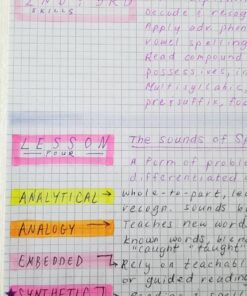 2ND / 3RD
SKILLS
Decode & recog
Apply adv. phon
vowel spelling
Read compound
possessives,
Multisyllabic,
prefix/suffix, fo
LESSON
FOUR
The sounds of Sp
A form of probl
differentiated
ANALYTICAL → whole-to-part, le
recogn. sounds b
ANALOGY → Teaches new word
known words, blen
"caught" "taught"
EMBEDDED → Rely on teachabl
or guided readin
SYNTHETIC